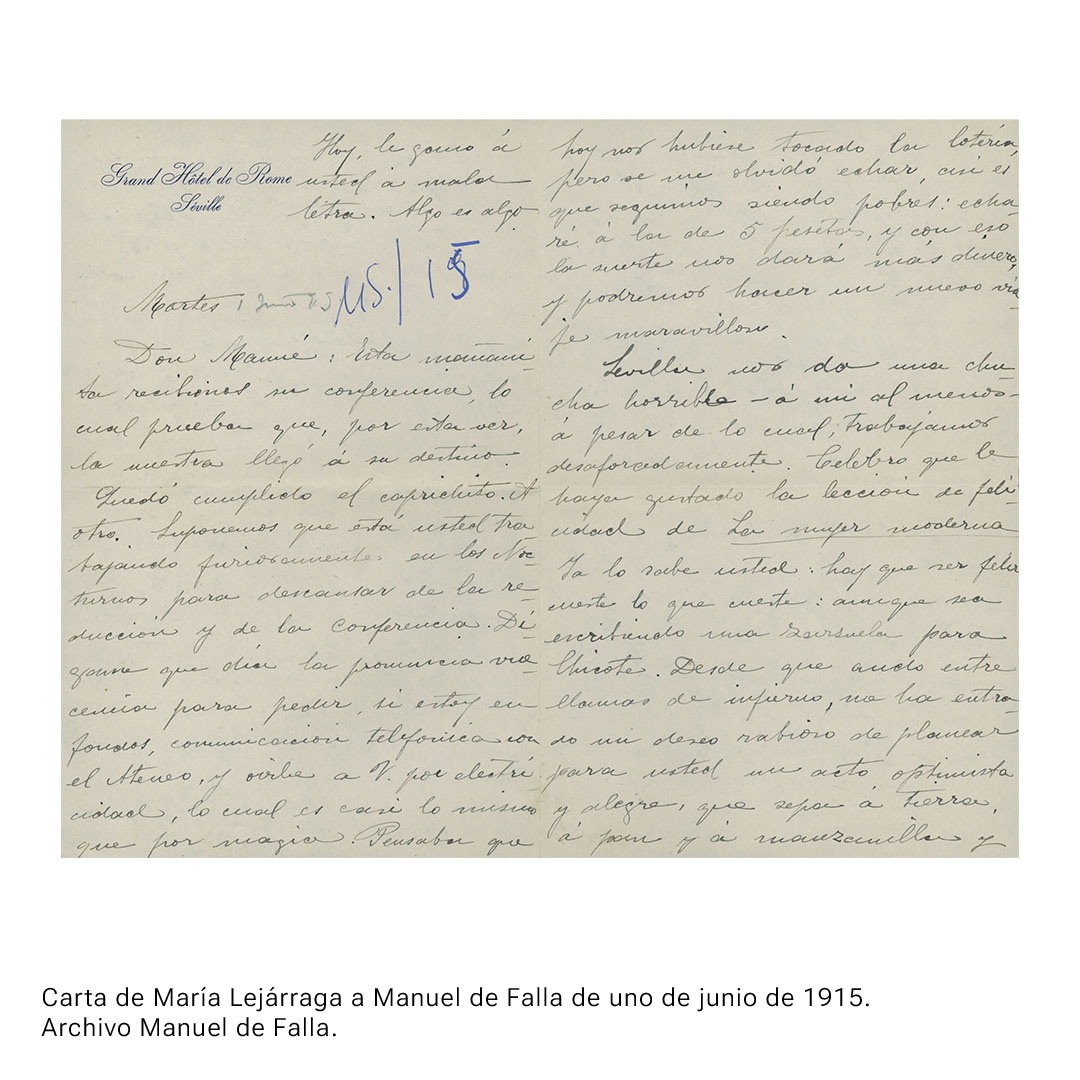 Grand Hôtel de Rome
Séville
Hoy, le gano á
usted á mala
letra. Algo es algo.
Martes 1 Junio
Don Manué: Esta mañani-
ta recibimos su conferencia, lo
cual prueba que, por esta vez,
la nuestra llegó á su destino.
Quedó cumplido el caprichito. A
otro. Suponemos que está usted tra-
bajando furiosamente en los Noc-
turnos para descansar de la re-
ducción y de la conferencia. Dí-
game que día la pronuncia
para pedir, si estoy en
fondos, comunicación telefónica con
el Ateneo, y oirle a V. por electri-
cidad, lo cual es casi lo mismo
que por magia. Pensaba que
hoy nos hubiese tocado la lotería,
pero se me olvidó echar, así es
que seguimos siendo pobres: echa-
ré á la de 5 pesetas, y con eso
la suerte nos dará más dinero,
y podremos hacer un nuevo via-
je maravilloso.
Sevilla nos da una
horrible - á mi al menos -
á pesar de lo cual, trabajamos
desaforadamente. Celebro que le
haya gustado la lección de feli-
cidad de La mujer moderna
Ya lo sabe usted: hay que ser feliz
cueste lo que cueste: aunque sea
escribiendo una zarzuela para
Chicote. Desde que ando entre
llamas de infierno, me ha entra-
do un deseo rabioso de planear
para usted un acto optimista
y alegre, que sepa á tierra,
á pan y á manzanilla y
Carta de María Lejárraga a Manuel de Falla de uno de junio de 1915.
Archivo Manuel de Falla.